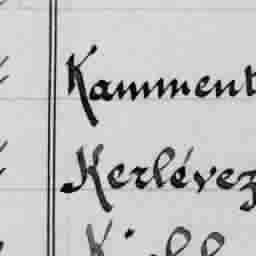 Kamment
Kerlévez